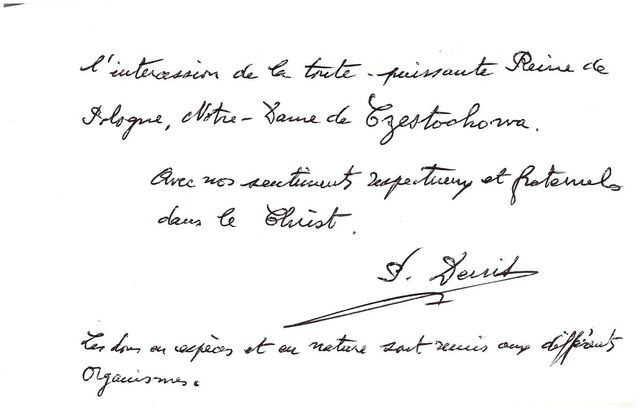 l'intercession de la toute-puissante Reine de
Pologne, Notre-Dame de Czestochowa.
Avec nos sentiments respectueux et fraternels
dans le Christ.
Denis
Les dons en espèces et en nature sont remis aux différents
organismes.